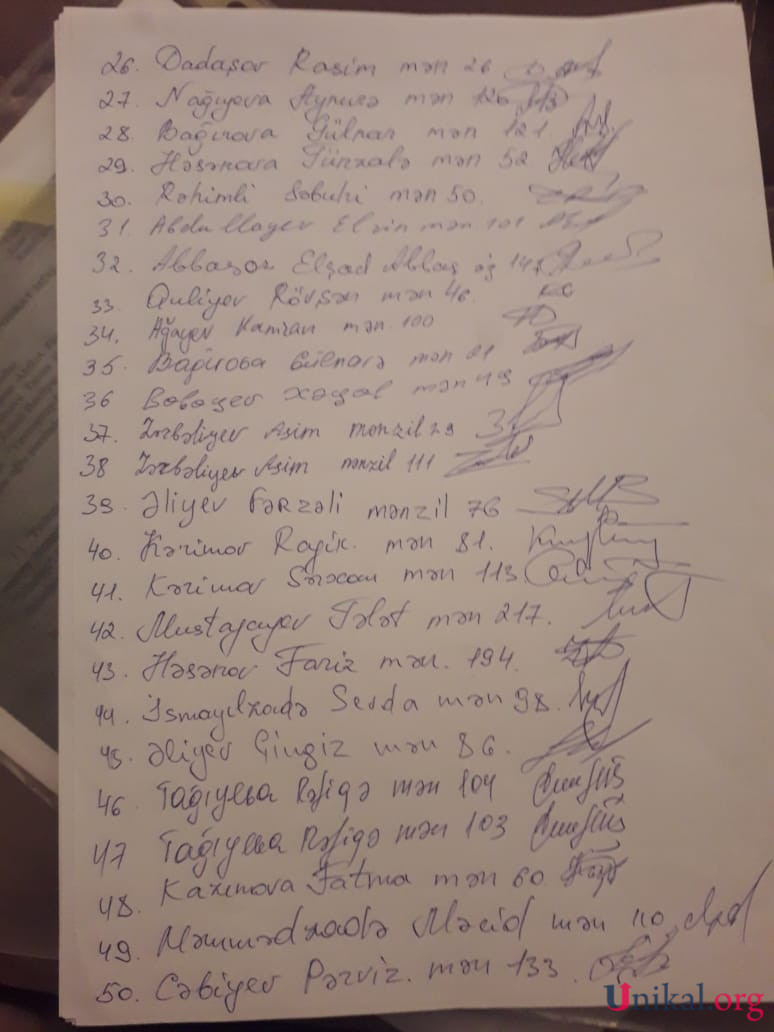 26. Dadaşov Rasim mən 26
27. Nağıyeva Aynurə mən 126
28. Bağırova Gülnar mən 121
29. Həsənova Günxalə mən 52
30. Rəhimli Səbuhi mən 50.
31. Abdullayev Elşin mən 101
32. Abbasov Elşad Abbas
33. Quliyev Rövşən mən 46.
34. Ağayev Kamran mən 100
35. Bağirova Gülnarə mən 21
36 Babayev Xəyal mən 49
37. Zərbəliyev Asim mənzil 29
38 Zərbəliyev Asim mənzil 111
39. Əliyev Fərzəli mənzil 76
40. Kərimov Rafik. mən 81.
41. Kərimov mən 113
42. Mustafayev Tələt mən 217.
43. Həsənov Fariz mən. 194.
44. İsmayılzadə Sevda mən 98.
45. Əliyev Çingiz mən 86.
46 Tağıyeva Rəfiqə mən 104
47 Tağıyeva Rəfiqə mən 103
48. Kazımova Fatma mən 60
49. Məmmədzadə Məcid mən 110.
50. Cəbiyev Pərviz. mən 133.
Unikal.org